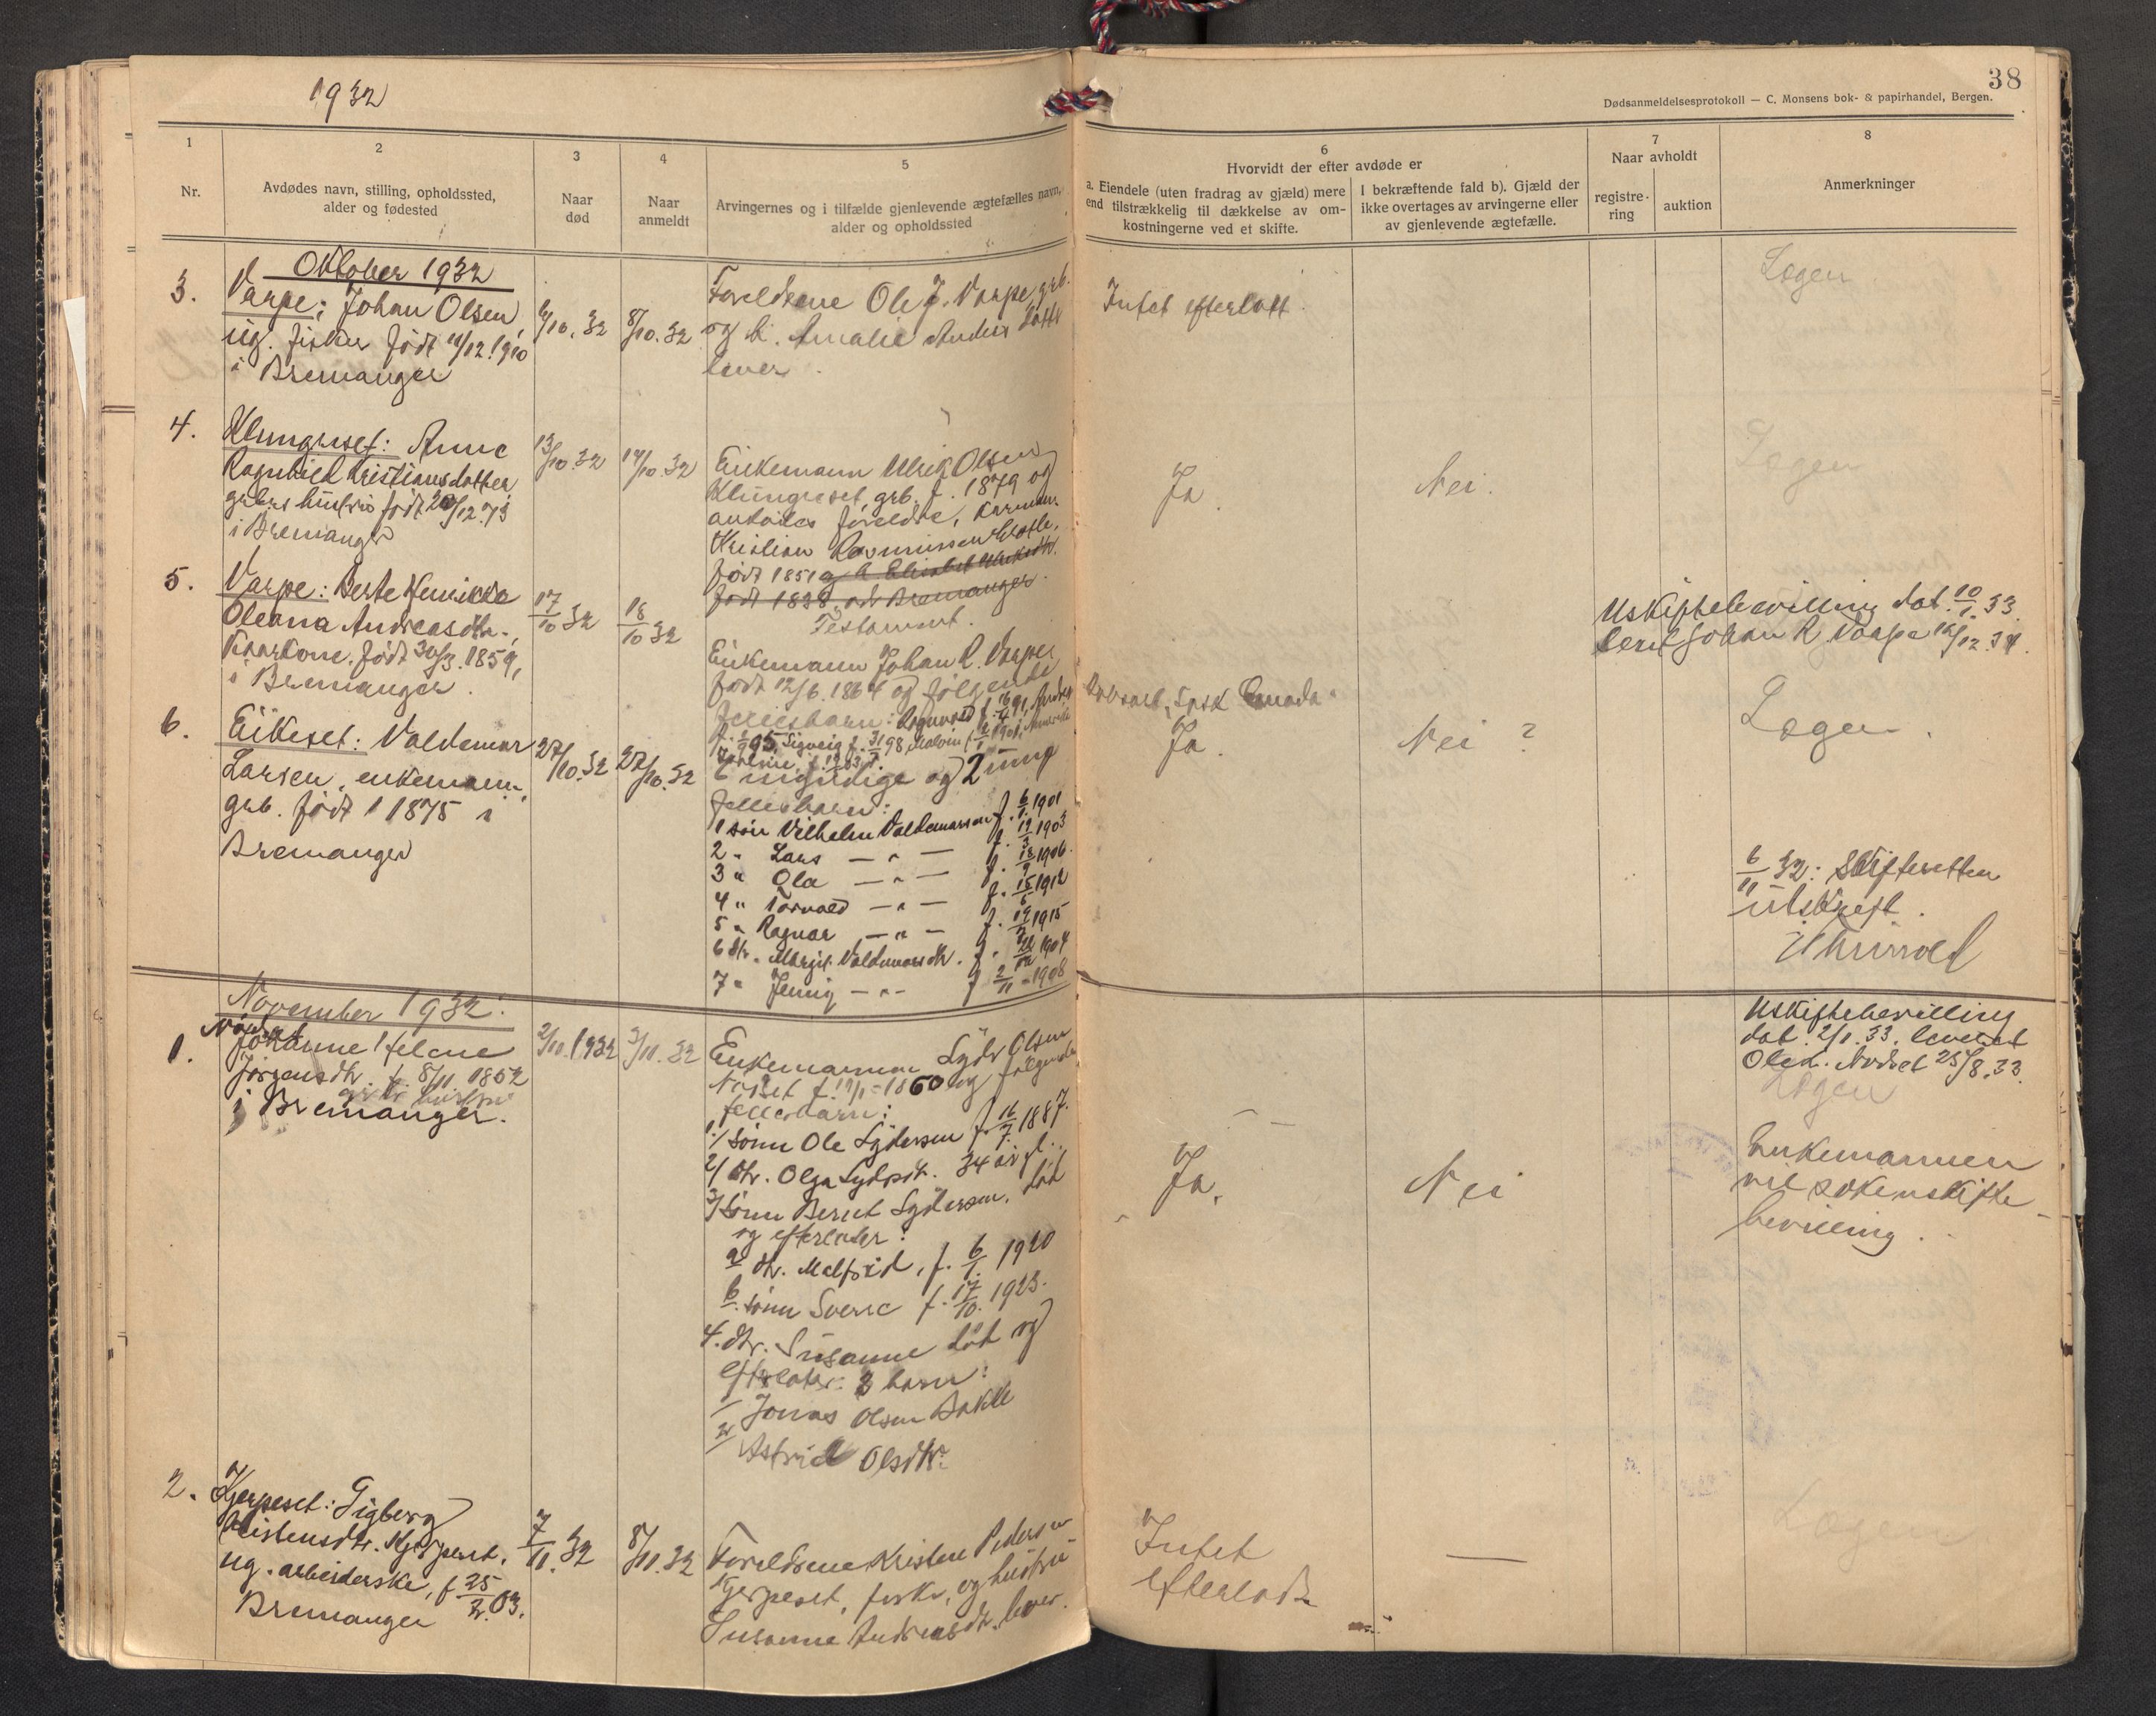 1932
38
Dødsanmeldelsesprotokoll — C. Monsens bok- & papirhandel, Bergen.
1
Nr.
2
Avdødes navn, stilling, opholdssted,
alder og fødested
3
Naar
død
4
Naar
anmeldt
5
Arvingernes og i tilfælde gjenlevende ægtefælles navn,
alder og opholdssted
6
Hvorvidt der efter avdøde er
a. Eiendele (uten fradrag av gjæld) mere
end tilstrækkelig til dækkelse av om-
kostningerne ved et skifte.
I bekræftende fald b). Gjæld der
ikke overtages av arvingerne eller
av gjenlevende ægtefælle.
7
Naar avholdt
registre-
ring
auktion
8
Anmerkninger
Oktober 1932
3.
Varpe; Johan Olsen,
ug. fisker født 11/12.1910
i Bremanger
6/10.32
8/10.32
Foreldrene Ole J. Varpe, grb.
og h. Amalie Anders datter
lever.
Intet efterlatt.
Logen
4.
Klungreset: Anne
Ragnhild Kristiansdatter
grbrs hustru født 20/12.73
i Bremanger
13/10.32
14/10.32
Enkemann Ulrik Olsen
Klungreset, grb. f. 1879 og
avdødes foreldre,
Kristian Rasmussen
født 1851 og h. Elisabet
født 1828, adr Bremanger.
Testament.
Ja
Nei.
Logen
5.
Varpe: Berte Henrikke
Oleana Andreasdtr.,
Kaarkone, født 30/3.1859,
i Bremanger.
17/10 32
18/10 32
Enkemann Johan R. Varpe,
født 12/6.1864 og følgende
fellesbarn: Ragnvald
Sigveig f. 98, Malvin
Canada
Uskiftebevilling dat. 10/1.33.
Johan R. Varpe 12.34.
6.
Eikeset: Valdemar
Larsen, enkemann,
grb. født 1 1875 i
Bremanger
27/10.32
27/10.32
myndige og 2 umy
fellesbarn:
1 søn Vilhelm Valdemarsen f. 6/1.1901
2 " Lars — " — f. 19/3 1903
3 " Ola — " — f. 18/9 1906.
4 " Torvald — " — f. 15/5 1912
5 " Ragnar — " — f. 19/2 1915
6 dtr. Margit Valdemarsdtr. f. 1904
7 " Jenny — " — f 2/11 - 1908
Ja.
Nei ?
Logen.
6/11 32: Skifteretten
utskrift.
November 1932.
1.
Nordset
Johanne Helene
Jörgensdtr. f. 8/11.1862
i Bremanger.
2/11.1932
3/11.32
Enkemannen Lyder Olsen
Nordset f. 17/1-1860 og følgende
fellesbarn:
1/ sönn Ole Lydersen f. 16/7.1887.
2/ dtr. Olga Lydersdtr. 34 år gl.
3/ sönn Bernt Lydersen, død
og efterlater:
a dtr. Malfrid, f. 6/1. 1920
b. sönn Sverre f. 17/10. 1923.
4. dtr. Susanne död og
efterlater: 2 barn:
1/ Jonas Olsen Bakke
2/ Astrid Olsdtr.
Ja.
Nei
Uskiftebevilling
dat. 2/1.33. leveret
Ole L. Nordset 25/8.33.
Logen
Enkemannen
vil söke uskifte
bevilling.
2.
Kjerpeset: Sigberg
Kristensdtr. Kjerpeset,
ug. arbeiderske, f 25/2.03.
Bremanger
7/11.32
8/11.32
Foreldrene Kristen Pedersen
Kjerpeset, fisker, og hustru
Susanne Andreasdtr. lever.
Intet
efterlatt
—
Logen